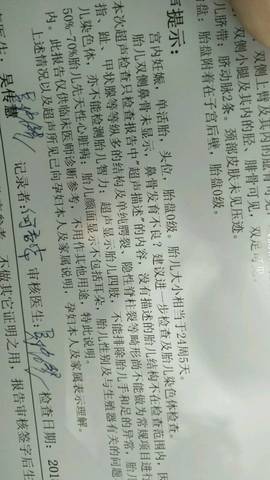 双侧上臂及其内的肱骨可见
双侧小腿及其内的胫、腓骨可见,双足
儿脐带:脐动脉2条,颈部皮肤未见压迹。
盘:胎盘附着在子宫后壁,胎盘0级。
提示:
宫内妊娠,单活胎,头位,胎盘0级。胎儿大小相当于24周5天。
胎儿双侧鼻骨未显示,鼻骨发育不良?建议进一步检查及胎儿染色体检查。
本次超声检查只检查报告中“超声描述”的内容,没有描述的胎儿结构不在检查范围内,因
指、趾、甲状腺等等众多的结构及单纯腭裂、隐性脊柱裂等畸形尚不能做为常规项目进行
儿染色体,亦不能检测胎儿智力;超声显示胎儿四肢,不能排除胎儿手和足的异常,胎儿
50%-70%胎儿先天性心脏病;胎儿颜面显示不包括耳朵,胎儿性别及与生殖器有关的问题
内。此报告仅供临床医师诊断参考,不用作其他用途,特此说明。
上述情况以及超声所见已向孕妇本人及家属说明,孕妇本人及家属表示理解。
医生:吴传慧 记录者: 审核医生: 检查日期:201
不做其它证明之用,报告审核签字后生